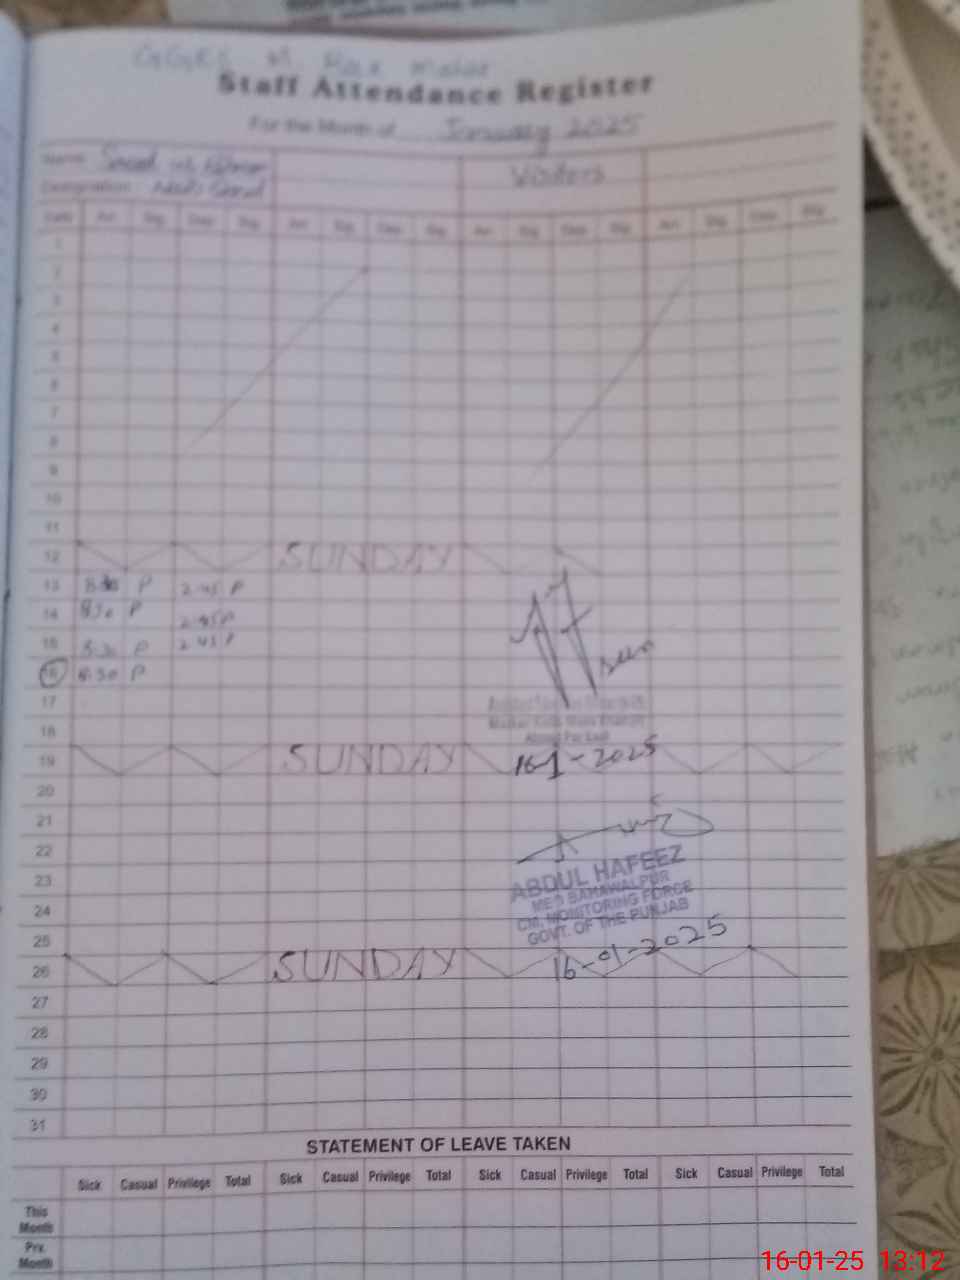 Staff Attendance Register
For the Month of January 2025
Name
Designation
Visitors
Date Arr. Sig. Dep. Sig. Arr. Sig. Dep. Sig. Arr. Sig. Dep. Sig. Arr. Sig. Dep. Sig.
1
2
3
4
5
6
7
8
9
10
11
12 SUNDAY
13 P 2.45 P
14 8.30 P 2.45 P
15 8.30 P 2.45 P
16 8.30 P
17
18
19 SUNDAY 16-1-2025
20
21
22
ABDUL HAFEEZ
23
MEO BAHAWALPUR
24
CM, MONITORING FORCE
GOVT. OF THE PUNJAB
25
26 SUNDAY 16-01-2025
27
28
29
30
31
STATEMENT OF LEAVE TAKEN
Sick Casual Privilege Total Sick Casual Privilege Total Sick Casual Privilege Total Sick Casual Privilege Total
This
Month
Prv.
Month
16-01-25 13:12